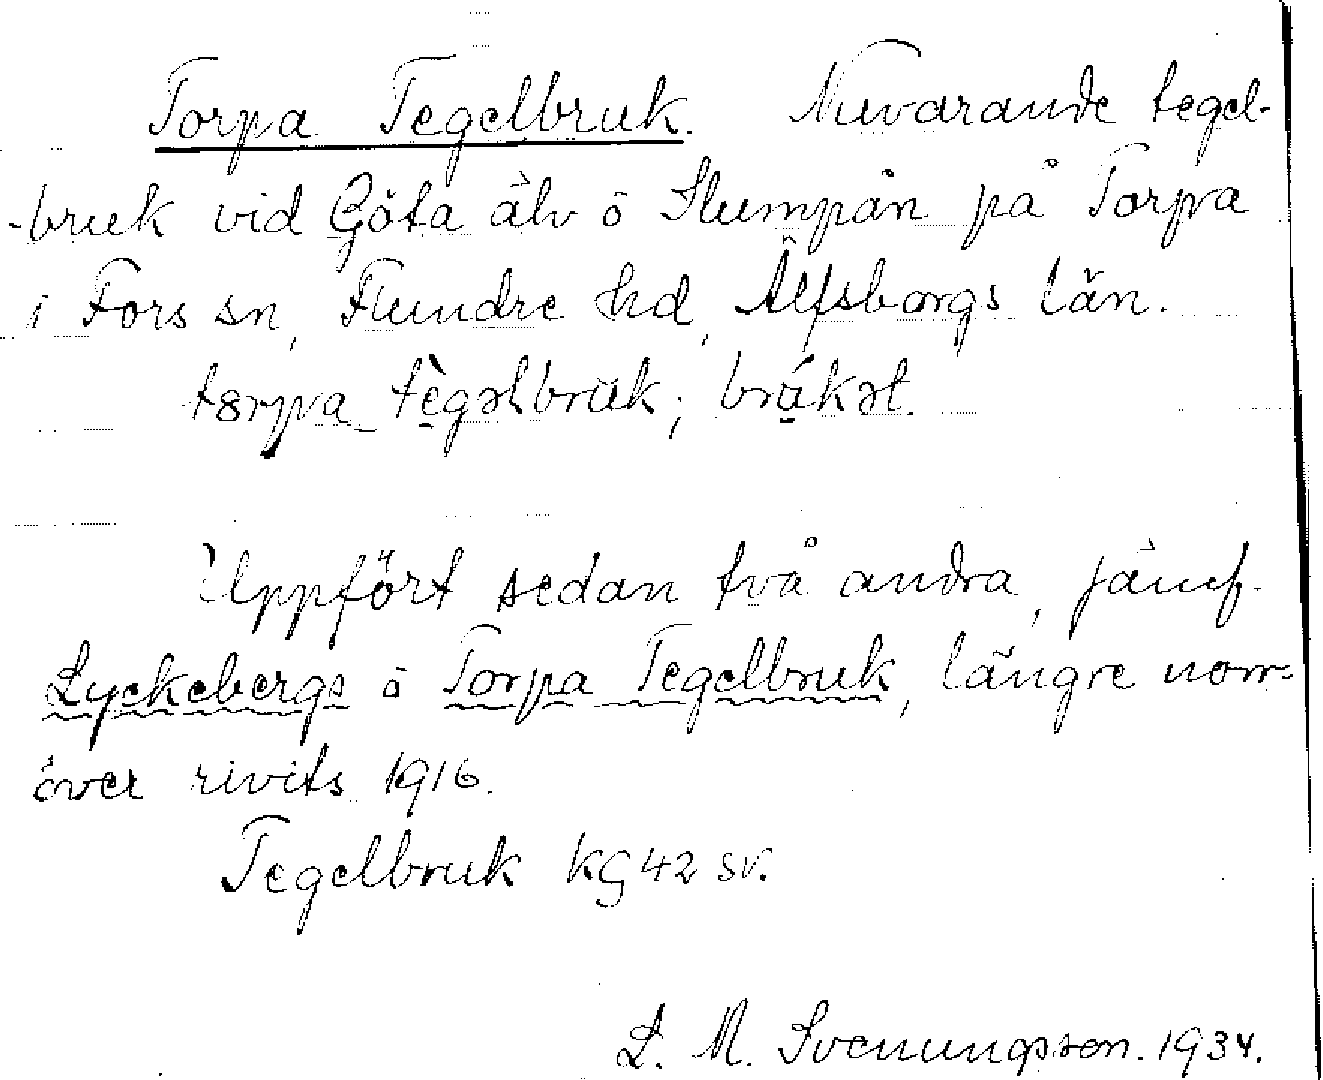 Torpa Tegelbruk. Nuvarande tegel-
-bruk vid Göta älv o Slumpån på Torpa
i Fors sn, Flundre hd, Älfsborgs län.
tegəlbruk; brukət.
Uppfört sedan två andra, jämf.
Lyckebergs o Torpa Tegelbruk, längre norr-
över rivits 1916.
Tegelbruk kg 42 sv.
L. M. Svenungsson. 1934.